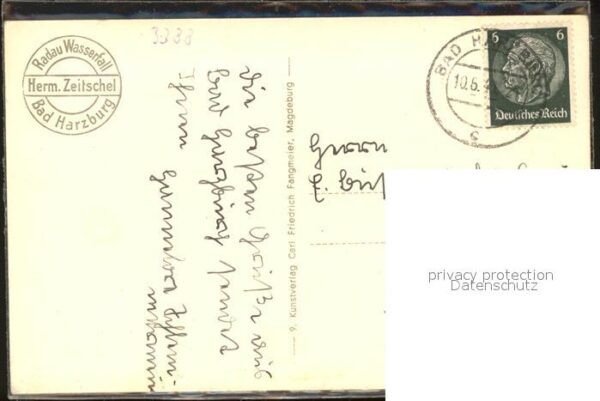 3338
Radau Wasserfall
Herm. Zeitschel
Bad Harzburg
Die besten Grüße aus
Bad Harzburg sendet
Ihnen
9. Kunstverlag Carl Friedrich Fangmeier, Magdeburg
BAD HARZBURG
10.6.
c
6 6
Deutsches Reich
Herrn
privacy protection
Datenschutz